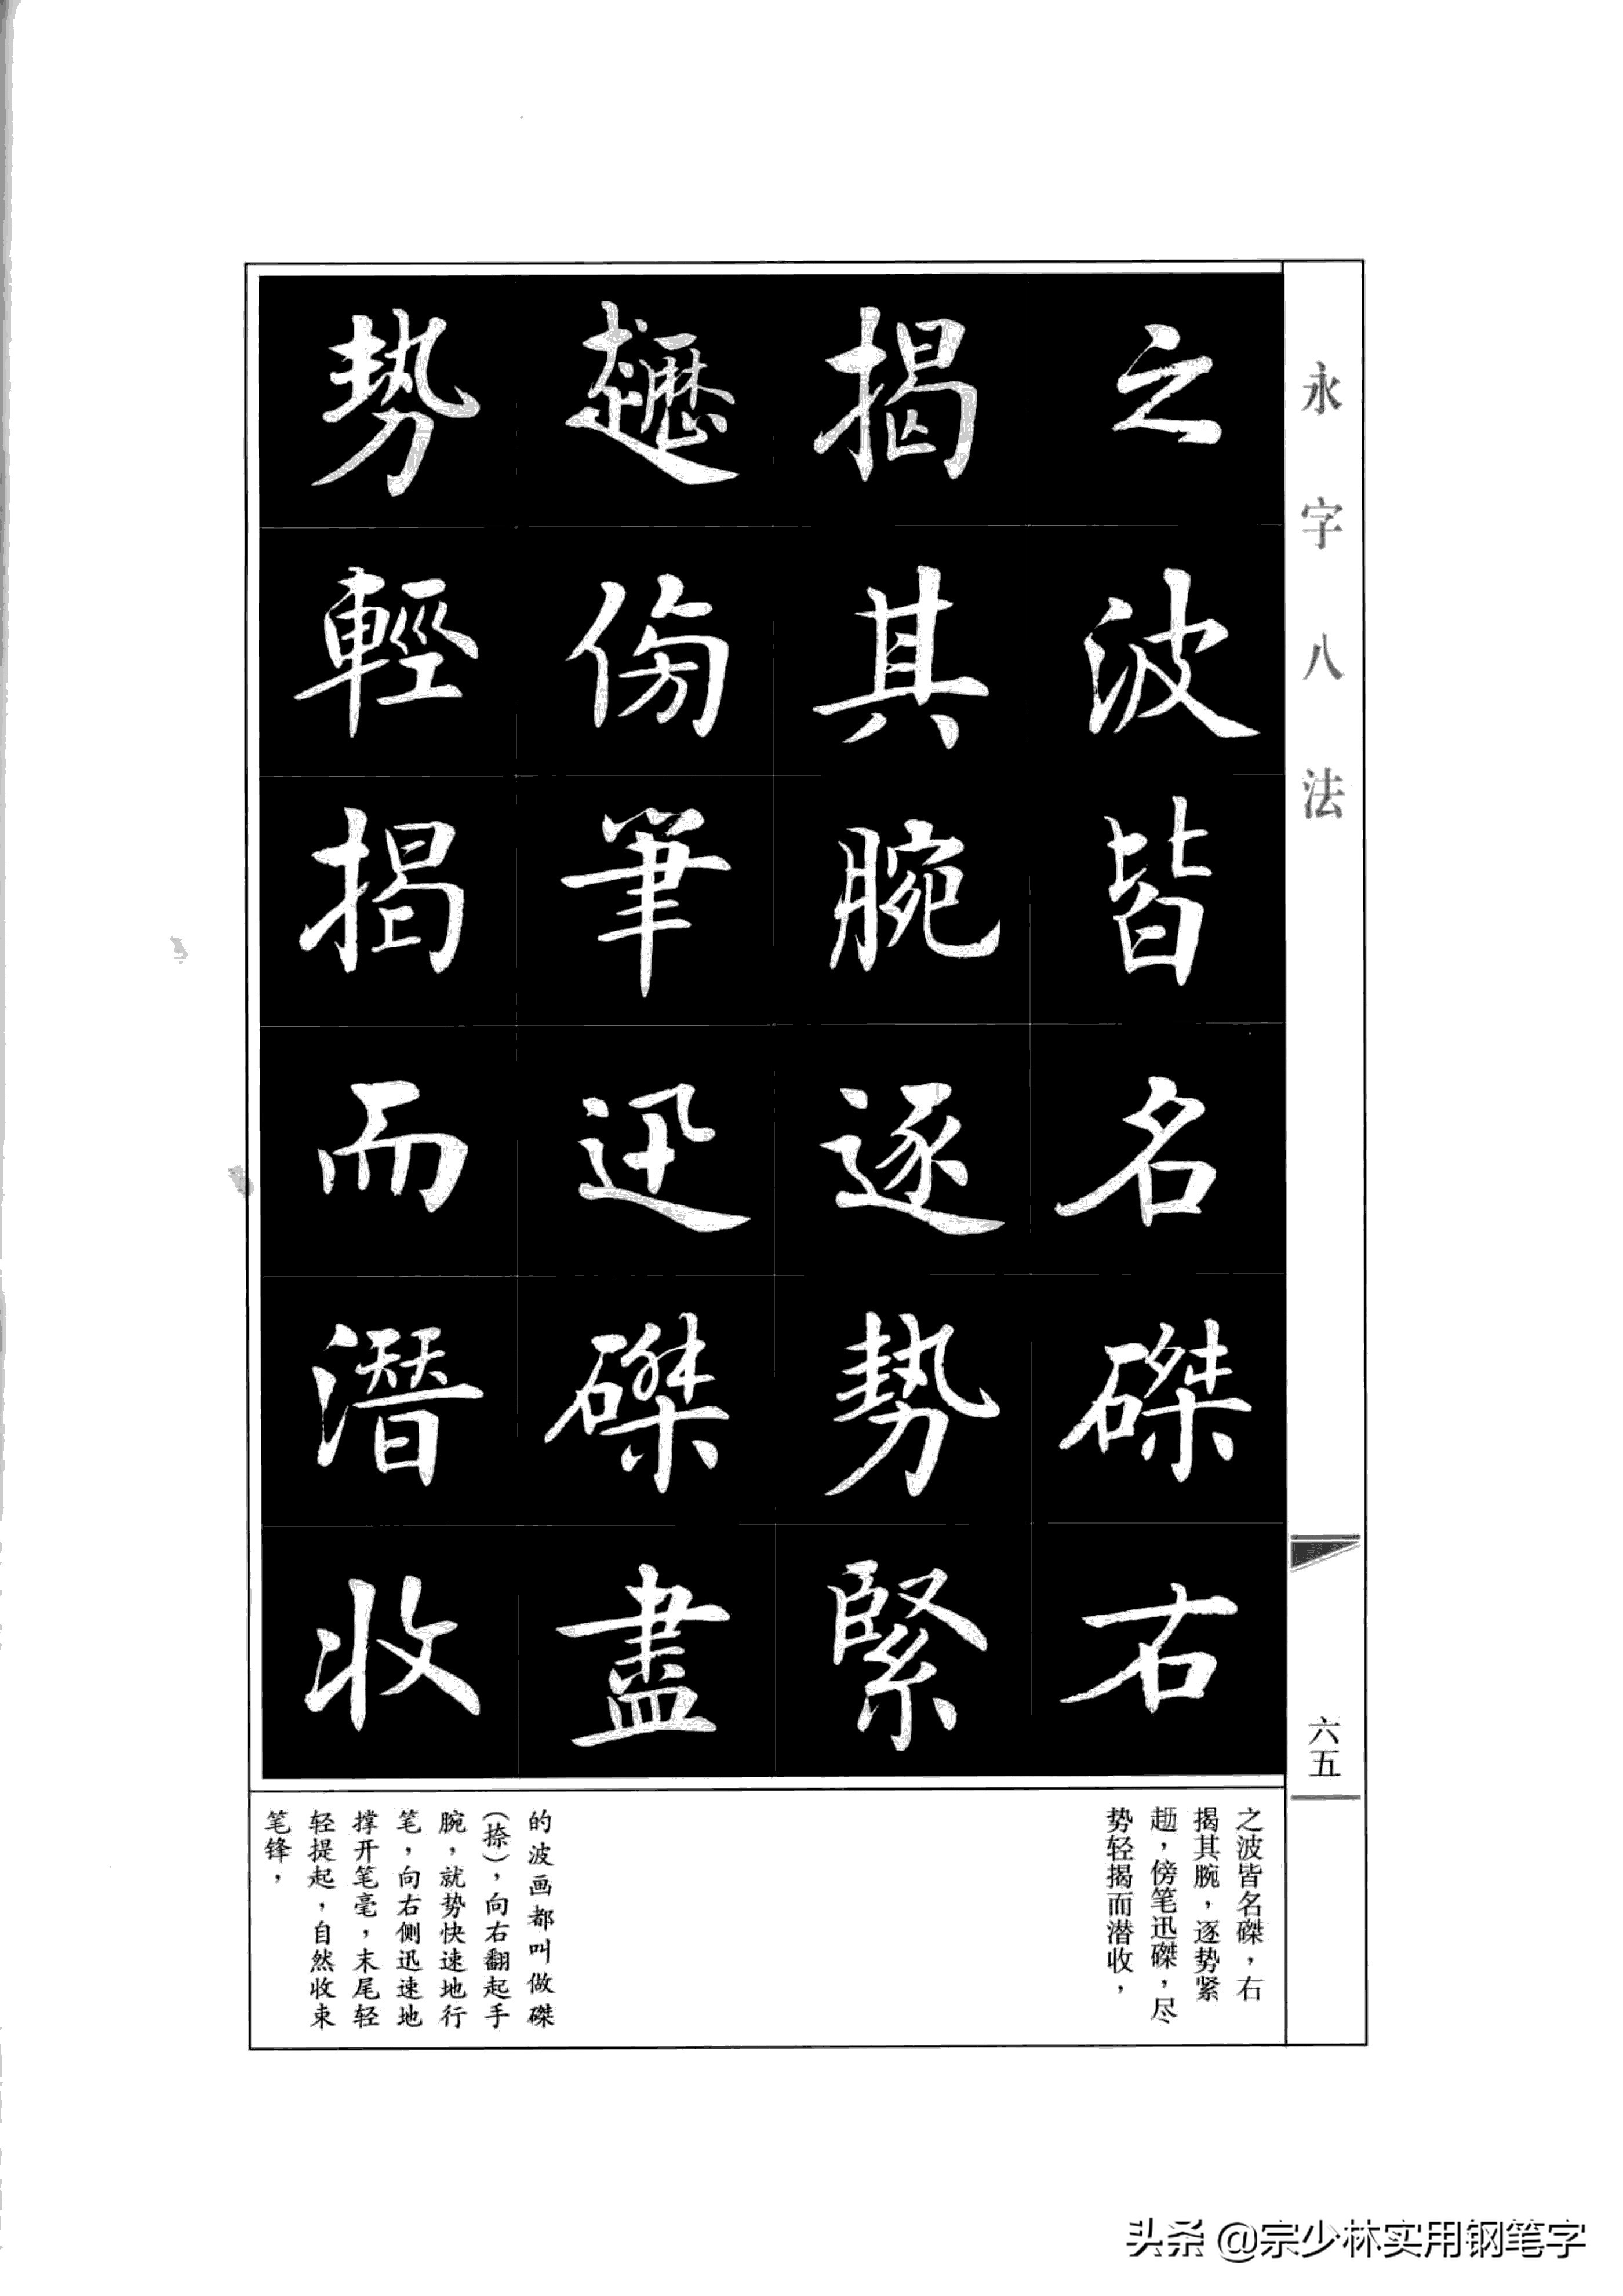 永字八法
六五
之波皆名磔右
揭其腕逐势緊
傍筆迅磔盡
势輕揭而潛收
之波皆名磔，右
揭其腕，逐势紧
，傍笔迅磔，尽
势轻揭而潜收，
的波画都叫做磔
（捺），向右翻起手
腕，就势快速地行
笔，向右侧迅速地
撑开笔毫，末尾轻
轻提起，自然收束
笔锋，
头条 @宗少林实用钢笔字